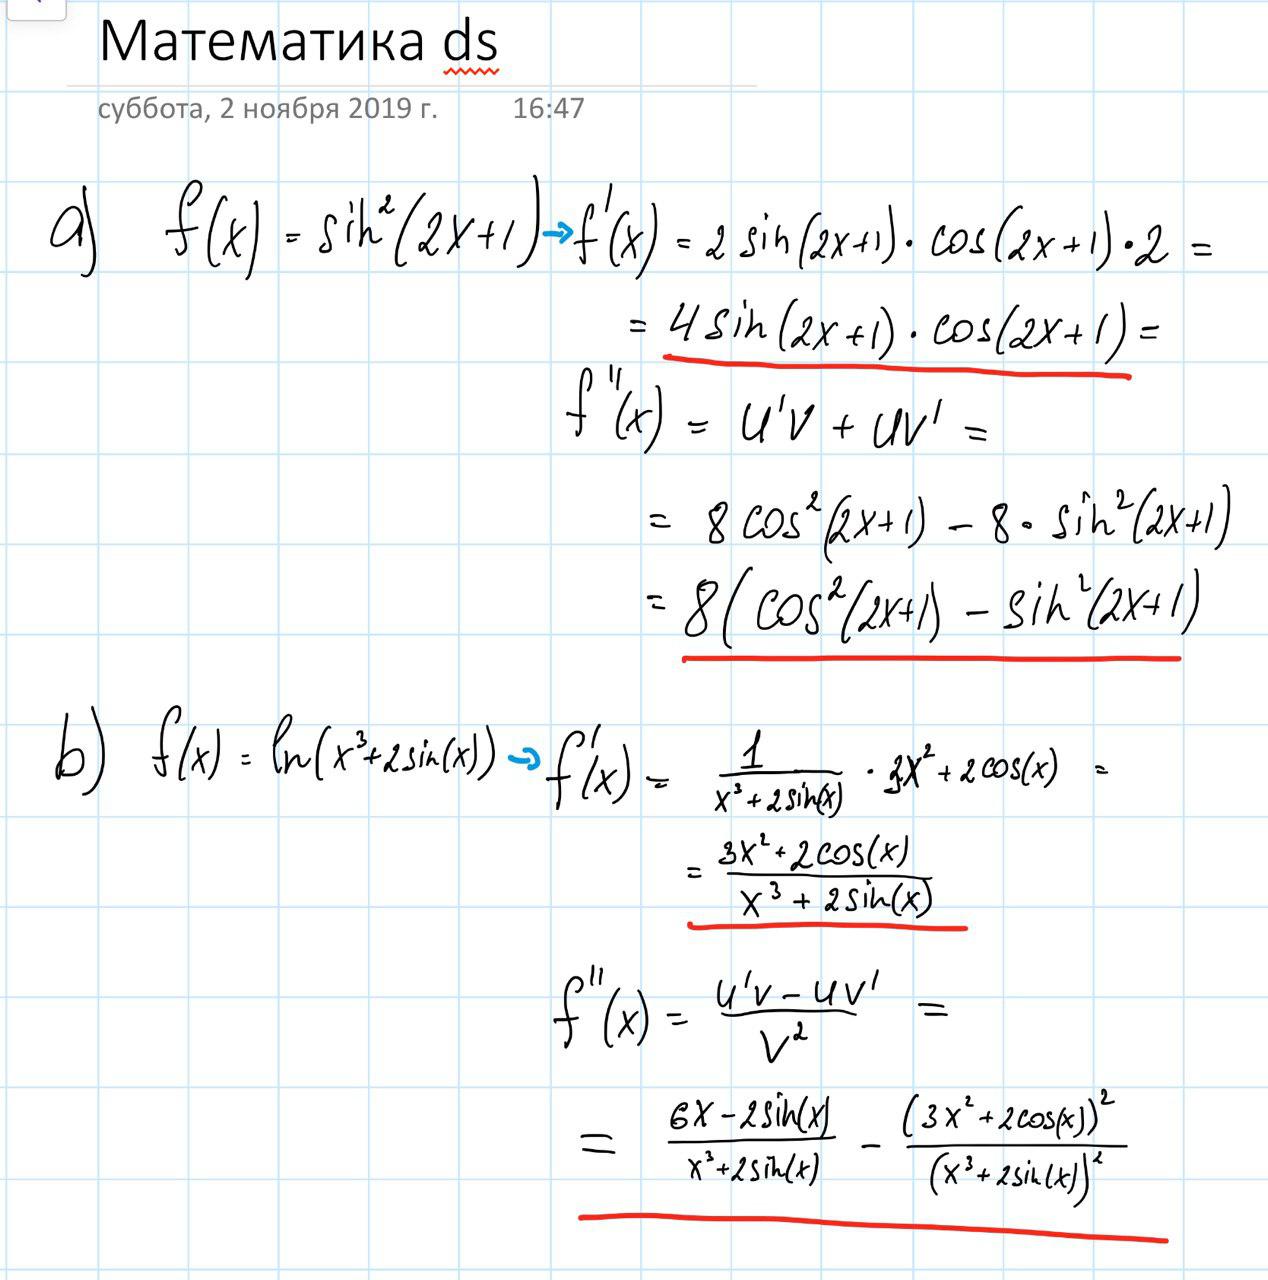 Математика ds
суббота, 2 ноября 2019 г. 16:47
a) f(x) = sin²(2x+1) → f'(x) = 2 sin(2x+1) · cos(2x+1) · 2 =
= 4 sin(2x+1) · cos(2x+1) =
f''(x) = u'v + uv' =
= 8 cos²(2x+1) - 8 · sin²(2x+1)
= 8(cos²(2x+1) - sin²(2x+1)
b) f(x) = ln(x³+2sin(x)) → f'(x) = 1/(x³+2sin(x)) · 3x²+2cos(x) =
= (3x²+2cos(x))/(x³+2sin(x))
f''(x) = (u'v - uv')/v² =
= (6x-2sin(x))/(x³+2sin(x)) - (3x²+2cos(x))²/(x³+2sin(x))²